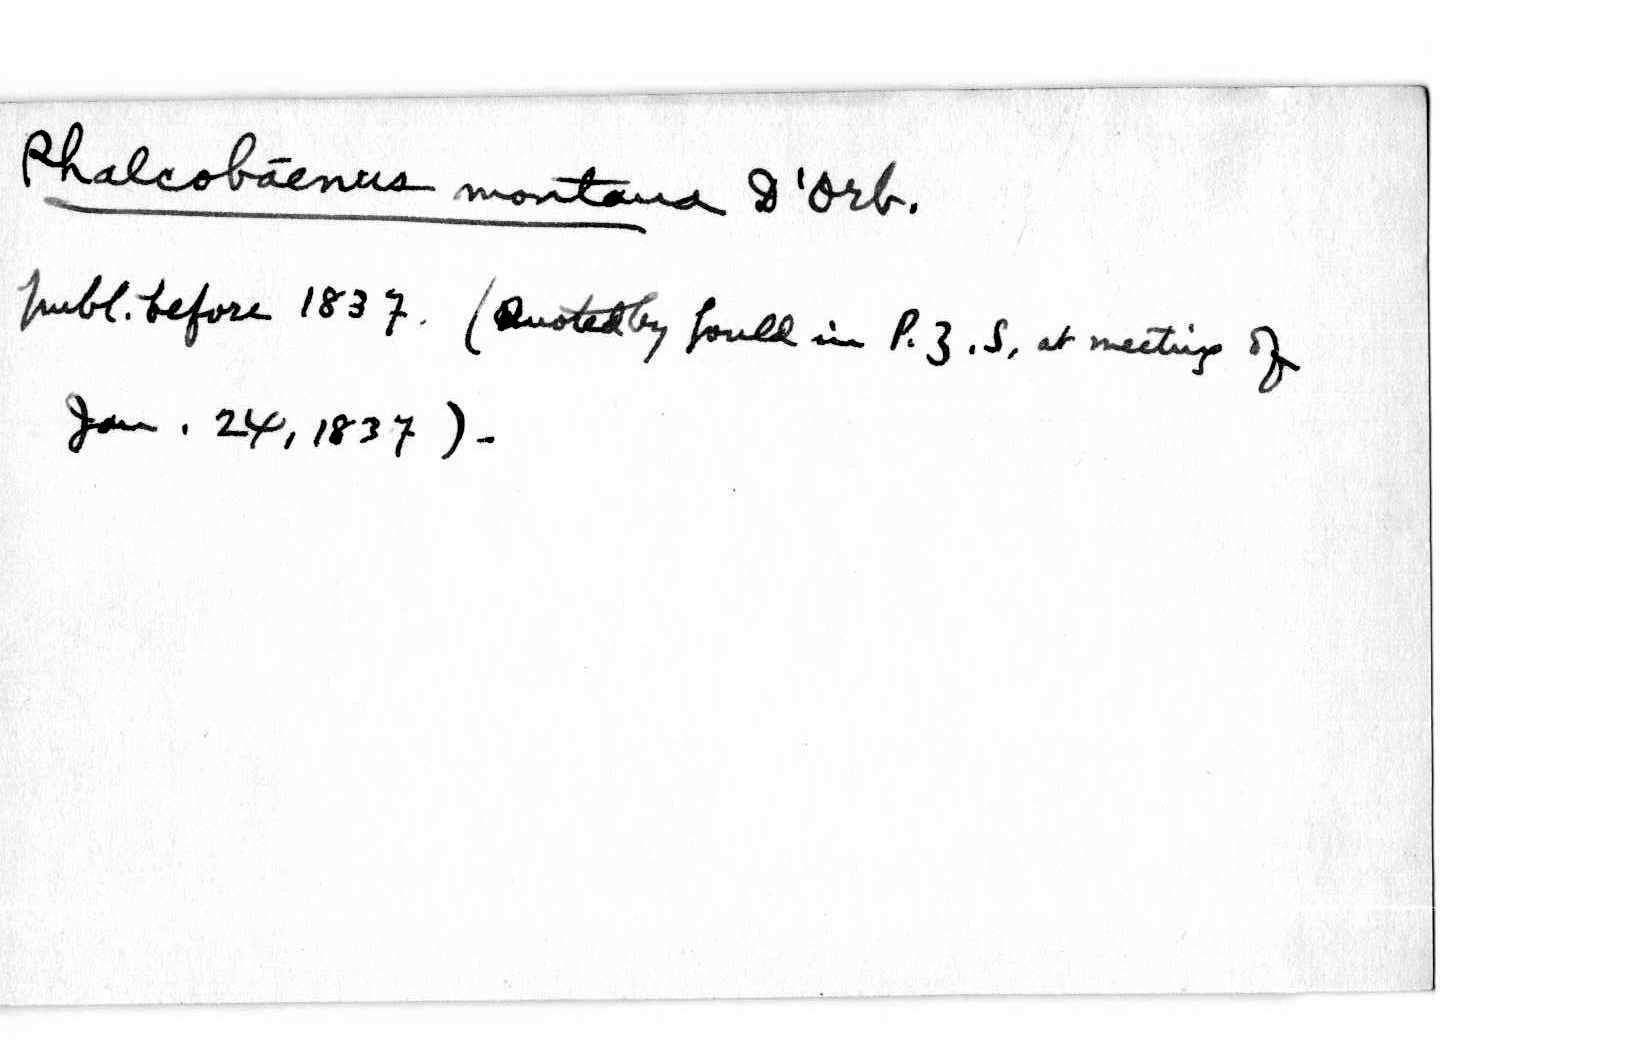 Phalcobāenus montanus D'Orb.
publ. before 1837. (Quoted by Gould in P.Z.S, at meeting of
Jan. 24, 1837)-